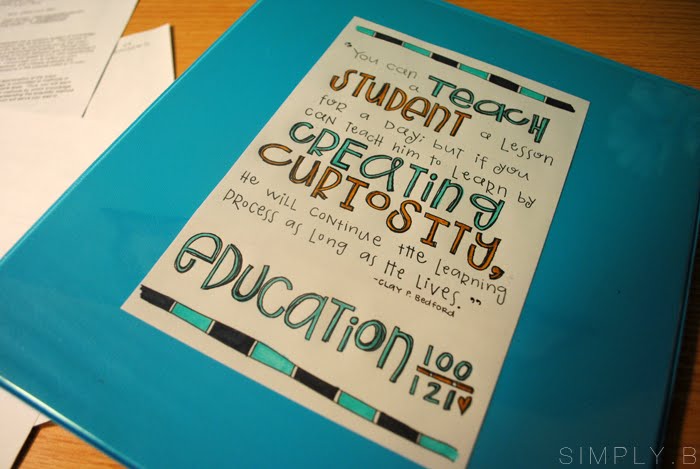 "You can
a TEACH
STUDENT a Lesson
for a Day; but if you
can teach him to Learn by
CREATING
CURIOSITY,
He will continue the learning
process as long as He Lives."
-Clay P. Bedford
EDUCATION 100
121
SIMPLY.B